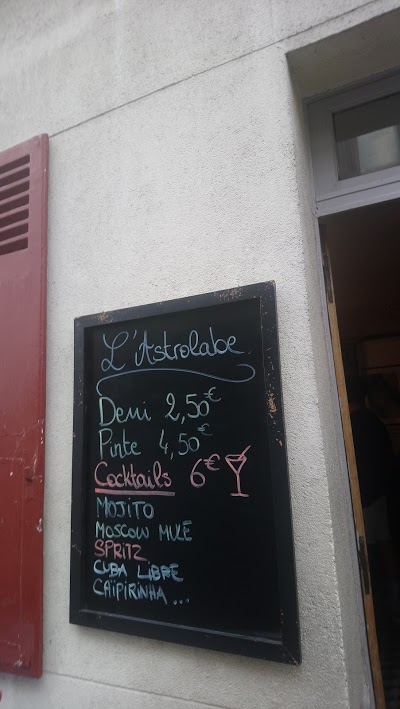 L'Astrolabe
Demi 2,50€
Pinte 4,50€
Cocktails 6€
MOJITO
MOSCOW MULE
SPRITZ
CUBA LIBRE
CAÏPIRINHA ...